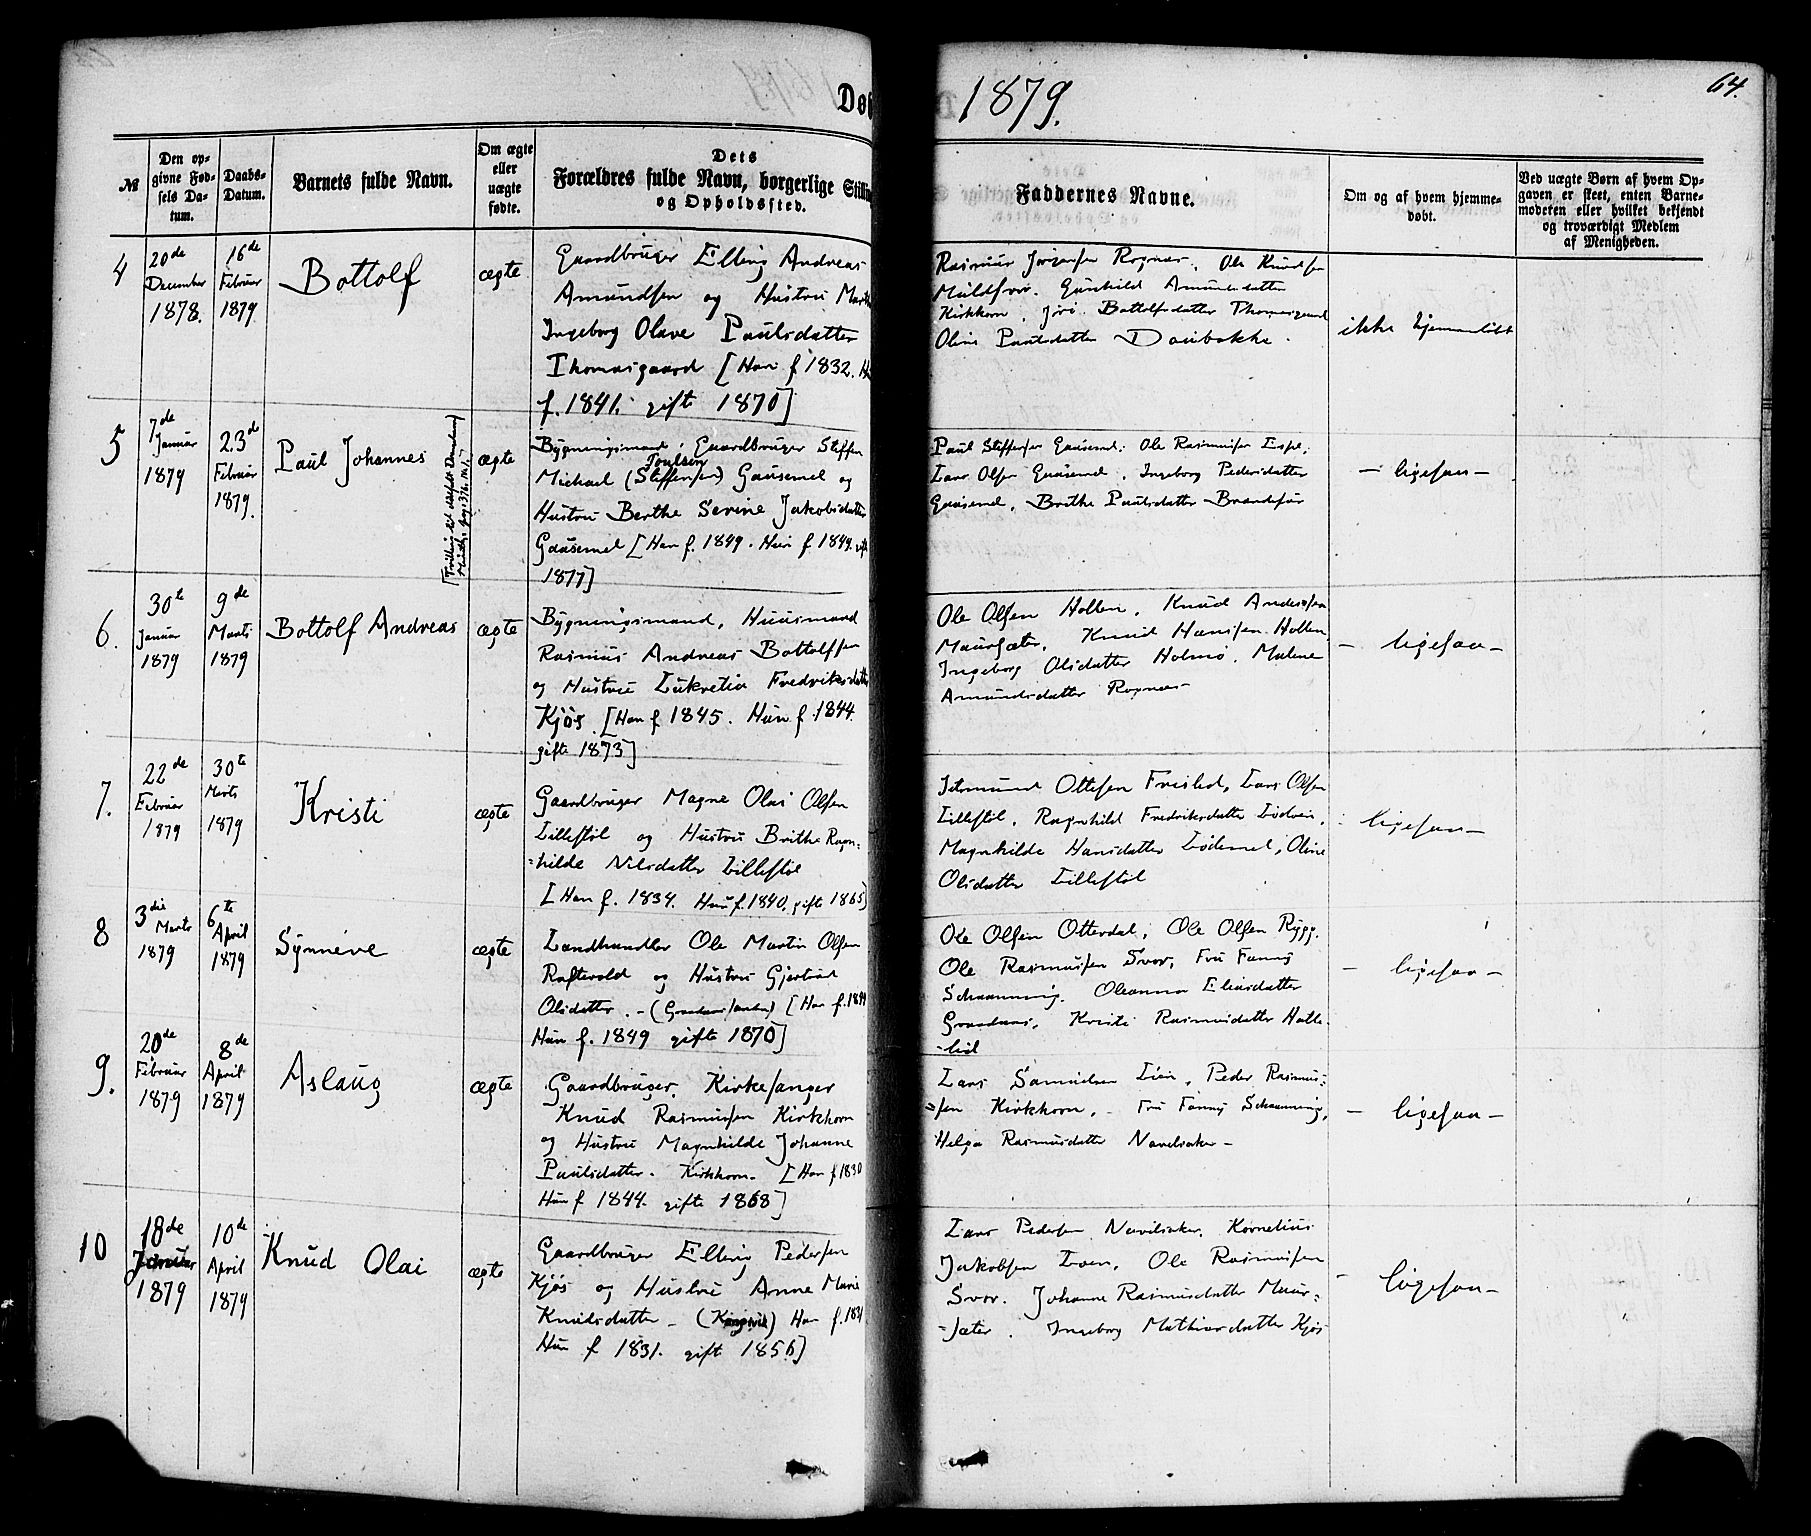 1879.
64.
№
Den opgivne Fødsels Datum.
Daabs-Datum.
Barnets fulde Navn.
Om ægte eller uægte fødte.
Dets Forældres fulde Navn, borgerlige Stilling og Opholdssted.
Faddernes Navne.
Om og af hvem hjemmedøbt.
Ved uægte Børn af hvem Opgaven er skeet, enten Barnemoderen eller hvilket bekjendt og troværdigt Medlem af Menigheden.
4
20de December 1878.
16de Februar 1879
Bottolf
ægte
Gaardbruger Elling Andreas
Amundsen og Hustru Marthe
Ingeborg Olave Paulsdatter
Thomasgaard [Han f 1832. H
f. 1841. gifte 1870]
Rasmus Jørgensen Rognæs. Ole Knudsen
Muldsvor. Gunhild Amundsdatter
Kirkhorn, Jøri Bottolfsdatter Thomasgaard
Oline Paulsdatter Doubakke.
ikke hjemmedøbt
5
7de Januar 1879
23d Februar 1879.
Paul Johannes
ægte
Bygningsmand, Gaardbruger Steffen
Poulsen
Michael (Steffensen) Gausemel og
Hustru Berthe Sevine Jakobsdatter
Gausemel [Han f. 1849. Hun f. 1849. gift
1877]
Paul Steffensen Gausemel. Ole Rasmusen Espe,
Lars Olsen Gausemel, Ingeborg Pedersdatter
Gausemel, Brithe Paulsdatter Brandsør
— ligesaa —
6.
30te Januar 1879
9de Marts 1879
Bottolf Andreas
ægte
Bygningsmand, Huusmand
Rasmus Andreas Bottolfsen
og Hustru Lukretia Fredriksdatter
Kjøs. [Han f 1845. Hun f. 1844.
gifte 1873]
Ole Olsen Hollen, Knud Andersen
Maursæter, Knud Hansen Hollen,
Ingeborg Olsdatter Holmø. Malene
Amundsdatter Rognæs
— ligesaa —
7.
22de Februar 1879
30te Marts 1879
Kristi
ægte
Gaardbruger Magne Olai Olsen
Lillestøl og Hustru Brithe Ragn-
=hilde Nilsdatter Lillestøl
[Han f. 1834. Hun f. 1840. gifte 1865]
Ottesen Frislid, Lars Olsen
Lillestøl, Ragnhild Fredriksdatter Lødøen,
Magnhilde Hansdatter Lødemel, Oline
Olsdatter Lillestøl
ligesaa —
8
3die Marts 1879
6te April 1879
Synneve
ægte
Landhandler Ole Martin Olsen
Raftevold og Hustru Gjertrud
Olsdatter. — [Han f. 1844
Hun f. 1849 gifte 1870]
Ole Olsen Otterdal, Ole Olsen Rygg.
Ole Rasmusen Svor, Fru Fanny
Schaanning. Oleanna Eliasdatter
Graadaas, Kristi Rasmusdatter Holle-
-lid
— ligesaa —
9.
20de Februar 1879
8de April 1879
Aslaug
ægte
Gaardbruger. Kirkesanger
Knud Rasmusen Kirkhorn
og Hustru Magnhilde Johanne
Paulsdatter. Kirkhorn. [Han f 1830
Hun f 1844. gifte 1868]
Lars Samuelsen Lien, Peder Rasmus=
=sen Kirkhorn, — Fru Fanny Schaanning,
Helga Rasmusdatter Navelsaker —
— ligesaa —
10
18de 1879
10de April 1879
Knud Olai
ægte
Gaardbruger Elling Pedersen
Kjøs og Hustru Anne Marie
Knudsdatter — Han f. 1831
Hun f 1831. gift 1856]
Lars Pedersen Navelsaker, Kornelius
Jakobsen Loen, Ole Rasmusen
Svor. Johanne Rasmusdatter Maur=
-sæter. Ingeborg Mathiasdatter Kjøs
— ligesaa —